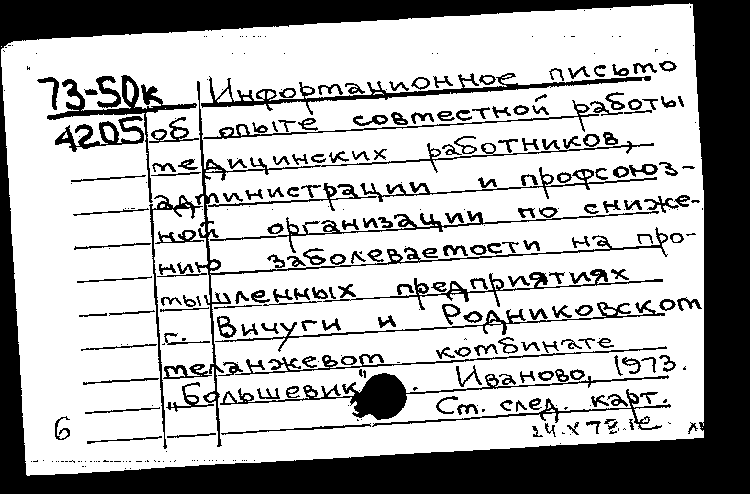 73-50к Информационное письмо
4205 об опыте совместной работы
медицинских работников,
администрации и профсоюз-
ной организации по сниже-
нию заболеваемости на про-
мышленных предприятиях
г. Вичуги и Родниковском
меланжевом комбинате
„Большевик". Иваново, 1973.
См. след. карт.
6